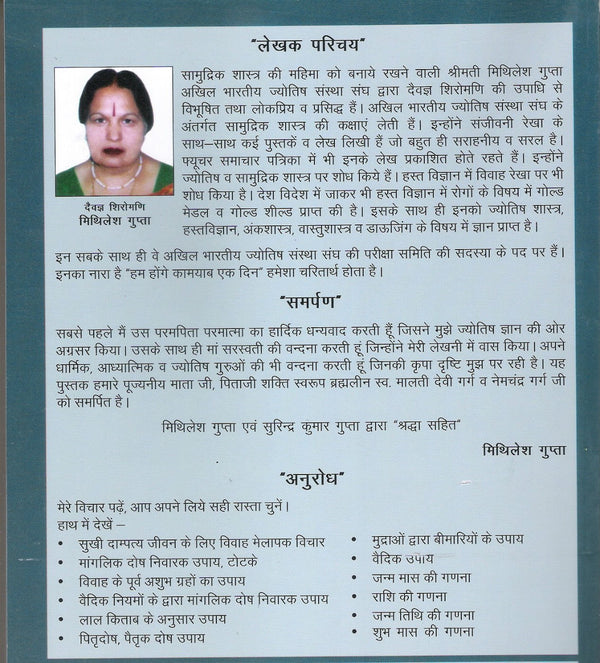 "लेखक परिचय"
सामुद्रिक शास्त्र की महिमा को बनाये रखने वाली श्रीमती मिथिलेश गुप्ता
अखिल भारतीय ज्योतिष संस्था संघ द्वारा दैवज्ञ शिरोमणि की उपाधि से
विभूषित तथा लोकप्रिय व प्रसिद्ध हैं। अखिल भारतीय ज्योतिष संस्था संघ के
अंतर्गत सामुद्रिक शास्त्र की कक्षाएं लेती हैं। इन्होंने संजीवनी रेखा के
साथ–साथ कई पुस्तकें व लेख लिखी हैं जो बहुत ही सराहनीय व सरल है।
फ्यूचर समाचार पत्रिका में भी इनके लेख प्रकाशित होते रहते हैं। इन्होंने
ज्योतिष व सामुद्रिक शास्त्र पर शोध किये हैं। हस्त विज्ञान में विवाह रेखा पर भी
शोध किया है। देश विदेश में जाकर भी हस्त विज्ञान में रोगों के विषय में गोल्ड
मेडल व गोल्ड शील्ड प्राप्त की है। इसके साथ ही इनको ज्योतिष शास्त्र,
हस्तविज्ञान, अंकशास्त्र, वास्तुशास्त्र व डाऊजिंग के विषय में ज्ञान प्राप्त है।
दैवज्ञ शिरोमणि
मिथिलेश गुप्ता
इन सबके साथ ही वे अखिल भारतीय ज्योतिष संस्था संघ की परीक्षा समिति की सदस्या के पद पर हैं।
इनका नारा है "हम होंगे कामयाब एक दिन" हमेशा चरितार्थ होता है।
"समर्पण"
सबसे पहले मैं उस परमपिता परमात्मा का हार्दिक धन्यवाद करती हूँ जिसने मुझे ज्योतिष ज्ञान की ओर
अग्रसर किया। उसके साथ ही मां सरस्वती की वन्दना करती हूं जिन्होंने मेरी लेखनी में वास किया। अपने
धार्मिक, आध्यात्मिक व ज्योतिष गुरुओं की भी वन्दना करती हूं जिनकी कृपा दृष्टि मुझ पर रही है। यह
पुस्तक हमारे पूज्यनीय माता जी, पिताजी शक्ति स्वरूप ब्रह्मलीन स्व. मालती देवी गर्ग व नेमचंद्र गर्ग जी
को समर्पित है।
मिथिलेश गुप्ता एवं सुरिन्द्र कुमार गुप्ता द्वारा "श्रद्धा सहित"
मिथिलेश गुप्ता
"अनुरोध"
मेरे विचार पढ़ें, आप अपने लिये सही रास्ता चुनें।
हाथ में देखें –
• सुखी दाम्पत्य जीवन के लिए विवाह मेलापक विचार
• मांगलिक दोष निवारक उपाय, टोटके
• विवाह के पूर्व अशुभ ग्रहों का उपाय
• वैदिक नियमों के द्वारा मांगलिक दोष निवारक उपाय
• लाल किताब के अनुसार उपाय
• पितृदोष, पैतृक दोष उपाय
• मुद्राओं द्वारा बीमारियों के उपाय
• वैदिक उपाय
• जन्म मास की गणना
• राशि की गणना
• जन्म तिथि की गणना
• शुभ मास की गणना